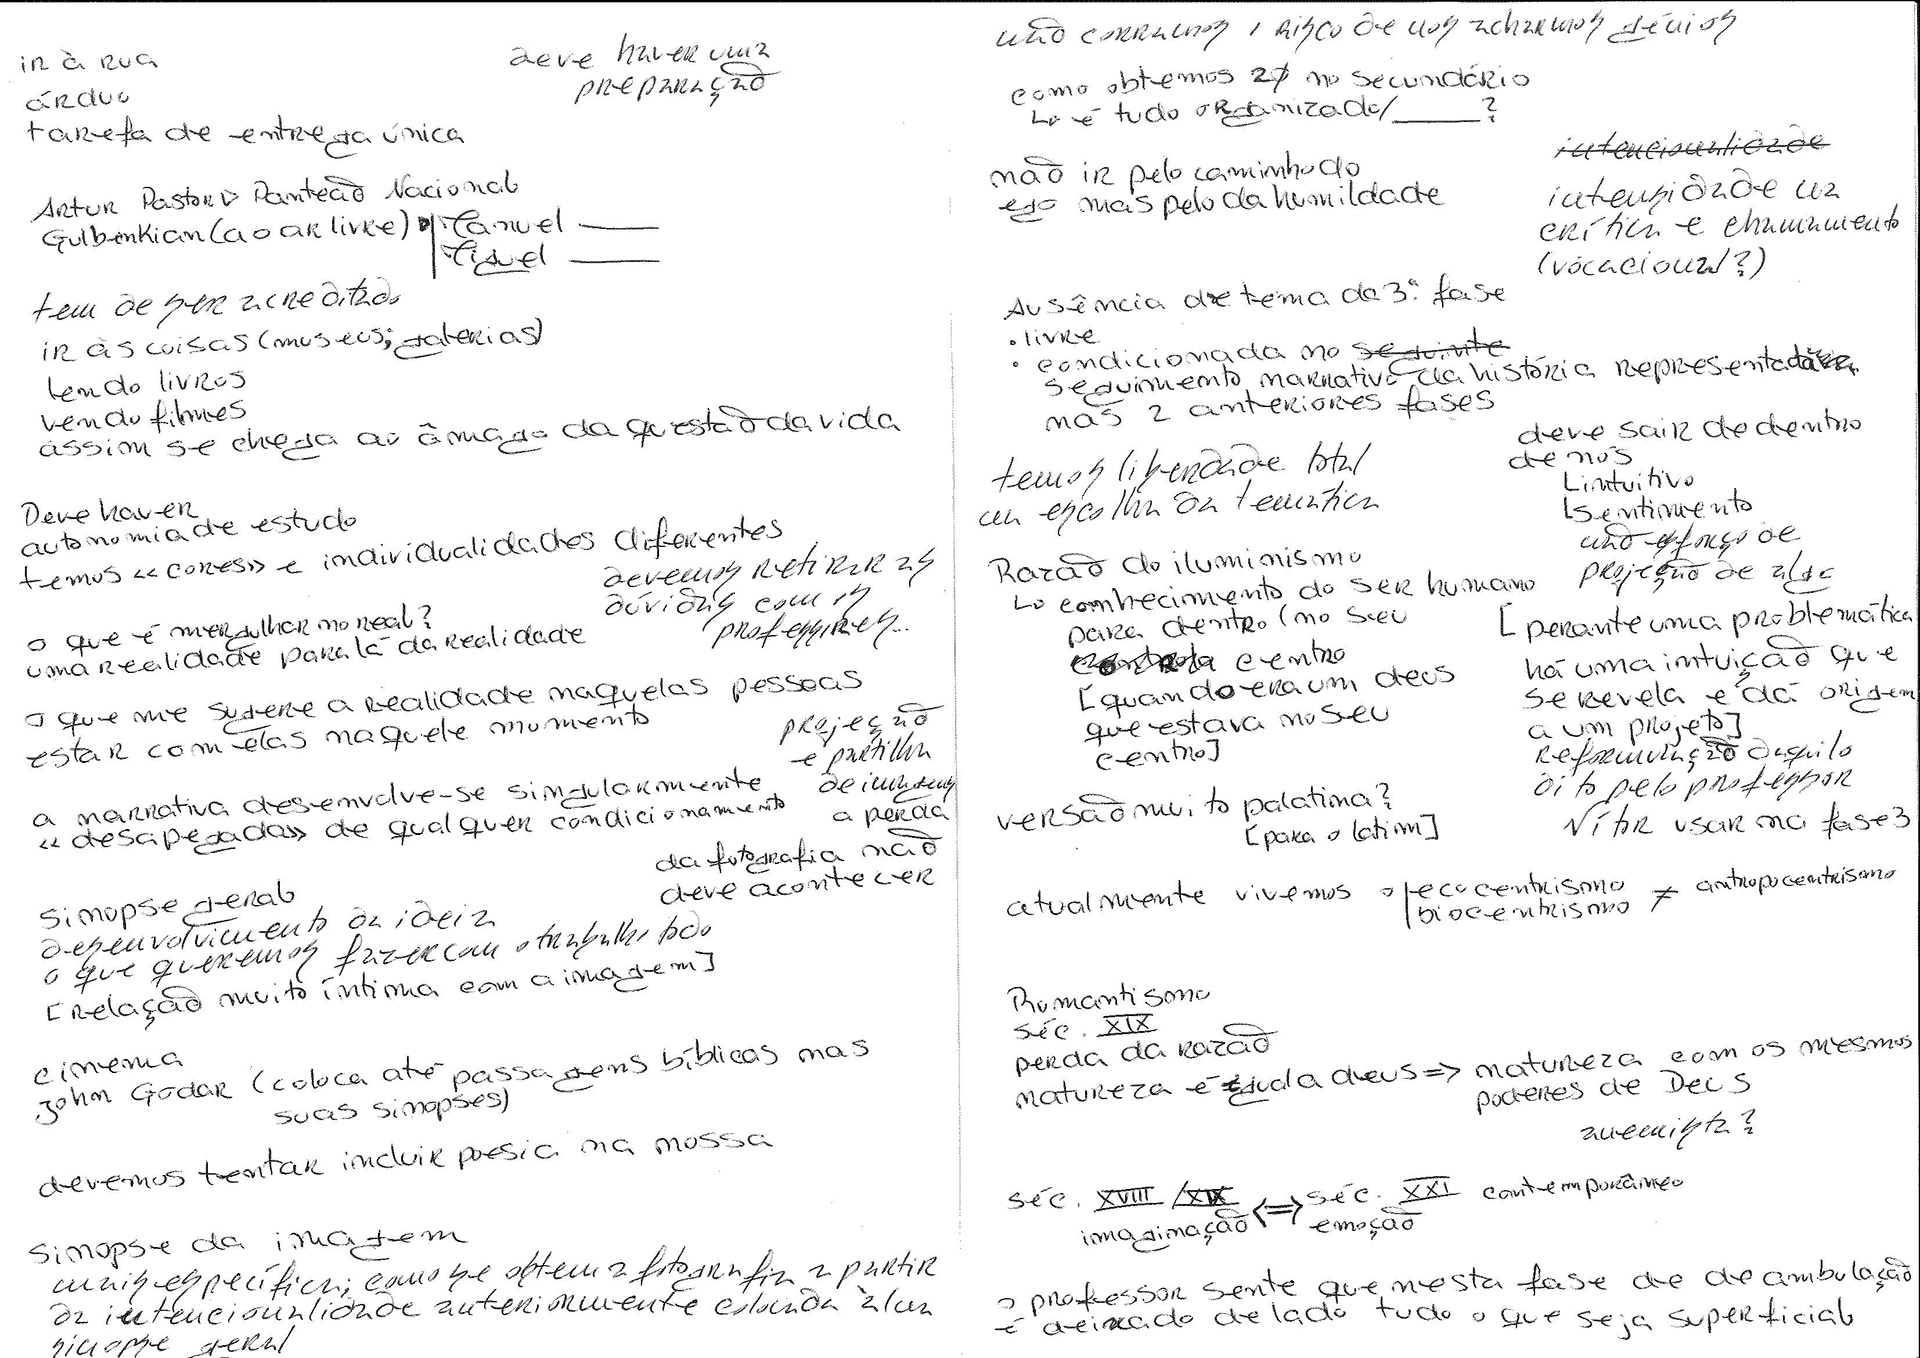 ir à rua
árduo
tarefa de entrega única
deve haver uma
preparação
Artur Pastor Panteão Nacional
Gulbenkian (ao ar livre) Manuel ____
Miguel ____
tem de ser acreditado
ir às coisas (museus; galerias)
lendo livros
vendo filmes
assim se chega ao âmago da questão da vida
Deve haver
autonomia de estudo
temos «cores» e individualidades diferentes
devemos retirar as
dúvidas com os
professores...
o que é mergulhar no real?
uma realidade para lá da realidade
o que me sugere a realidade naquelas pessoas
estar com elas naquele momento
projeção
e partilha
de imagens
a narrativa desenvolve-se singularmente
«desapegada» de qualquer condicionamento
a perda
da fotografia não
deve acontecer
sinopse geral
desenvolvimento da ideia
o que queremos fazer com o trabalho todo
[relação muito íntima com a imagem]
cinema
John Godar (coloca até passagens bíblicas nas
suas sinopses)
devemos tentar incluir poesia na nossa
sinopse da imagem
mais específica; como se obtem a fotografia a partir
da intencionalidade anteriormente colocada na
sinopse geral
não corramos o risco de nos acharmos génios
como obtemos 20 no secundário
↳ é tudo organizado/_____?
não ir pelo caminho do
ego mas pelo da humildade
intencionalidade
intensidade na
crítica e chamamento
(vocacional?)
Ausência de tema da 3.ª fase
• livre
• condicionada no seguinte
seguimento narrativo da história representada
nas 2 anteriores fases
temos liberdade total
na escolha da temática
deve sair de dentro
de nós
intuitivo
sentimento
não esforço de
projeção de algo
Razão do iluminismo
↳ conhecimento do ser humano
para dentro (no seu
centro
[quando era um deus
que estava no seu
centro]
[perante uma problemática
há uma intuição que
se revela e dá origem
a um projeto]
reformulação daquilo
dito pelo professor
Vítor usar na fase 3
versão muito palatina?
[para o latim]
atualmente vivemos o ecocentrismo ≠ antropocentrismo
biocentrismo
Romantismo
séc. XIX
perda da razão
natureza é igual a deus => natureza com os mesmos
poderes de Deus
séc. XVIII / XIX <=> séc. XXI contemporâneo
imaginação emoção
o professor sente que nesta fase de deambulação
é deixado de lado tudo o que seja superficial